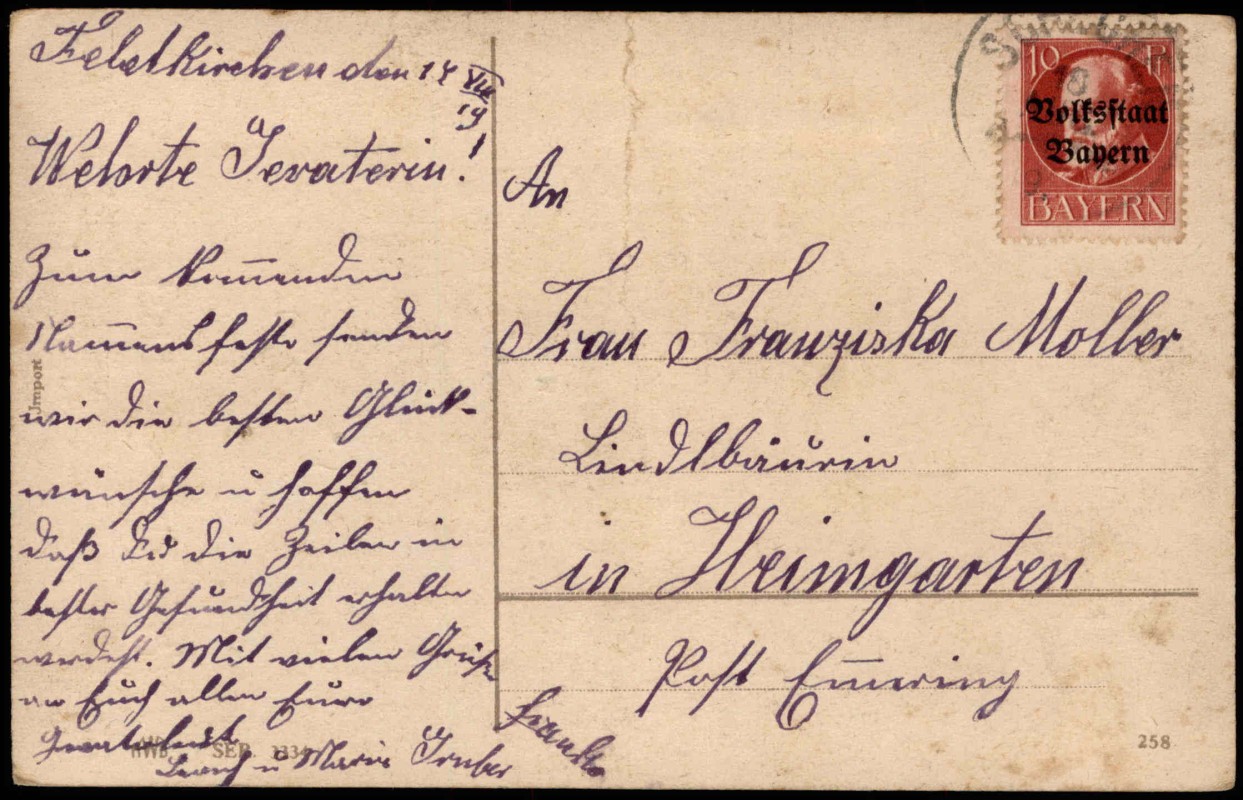 Feldkirchen den 14 VIII
19
Wehrte Gevaterin!
Zum kommenden
Nammensfeste senden
wir die besten Glück-
wünsche u hoffen
daß Du die Zeilen in
bester Gesundheit erhalten
werdest. Mit vielen Grüße
an Euch allen Eure
Gevatersleut
u Maria Gruber
An
Frau Franziska Moller
Lindlbäurin
in Heimgarten
Post Emering
Franko
10 Pf
Volksstaat
Bayern
BAYERN
Import
HWB. SER. 3334
258